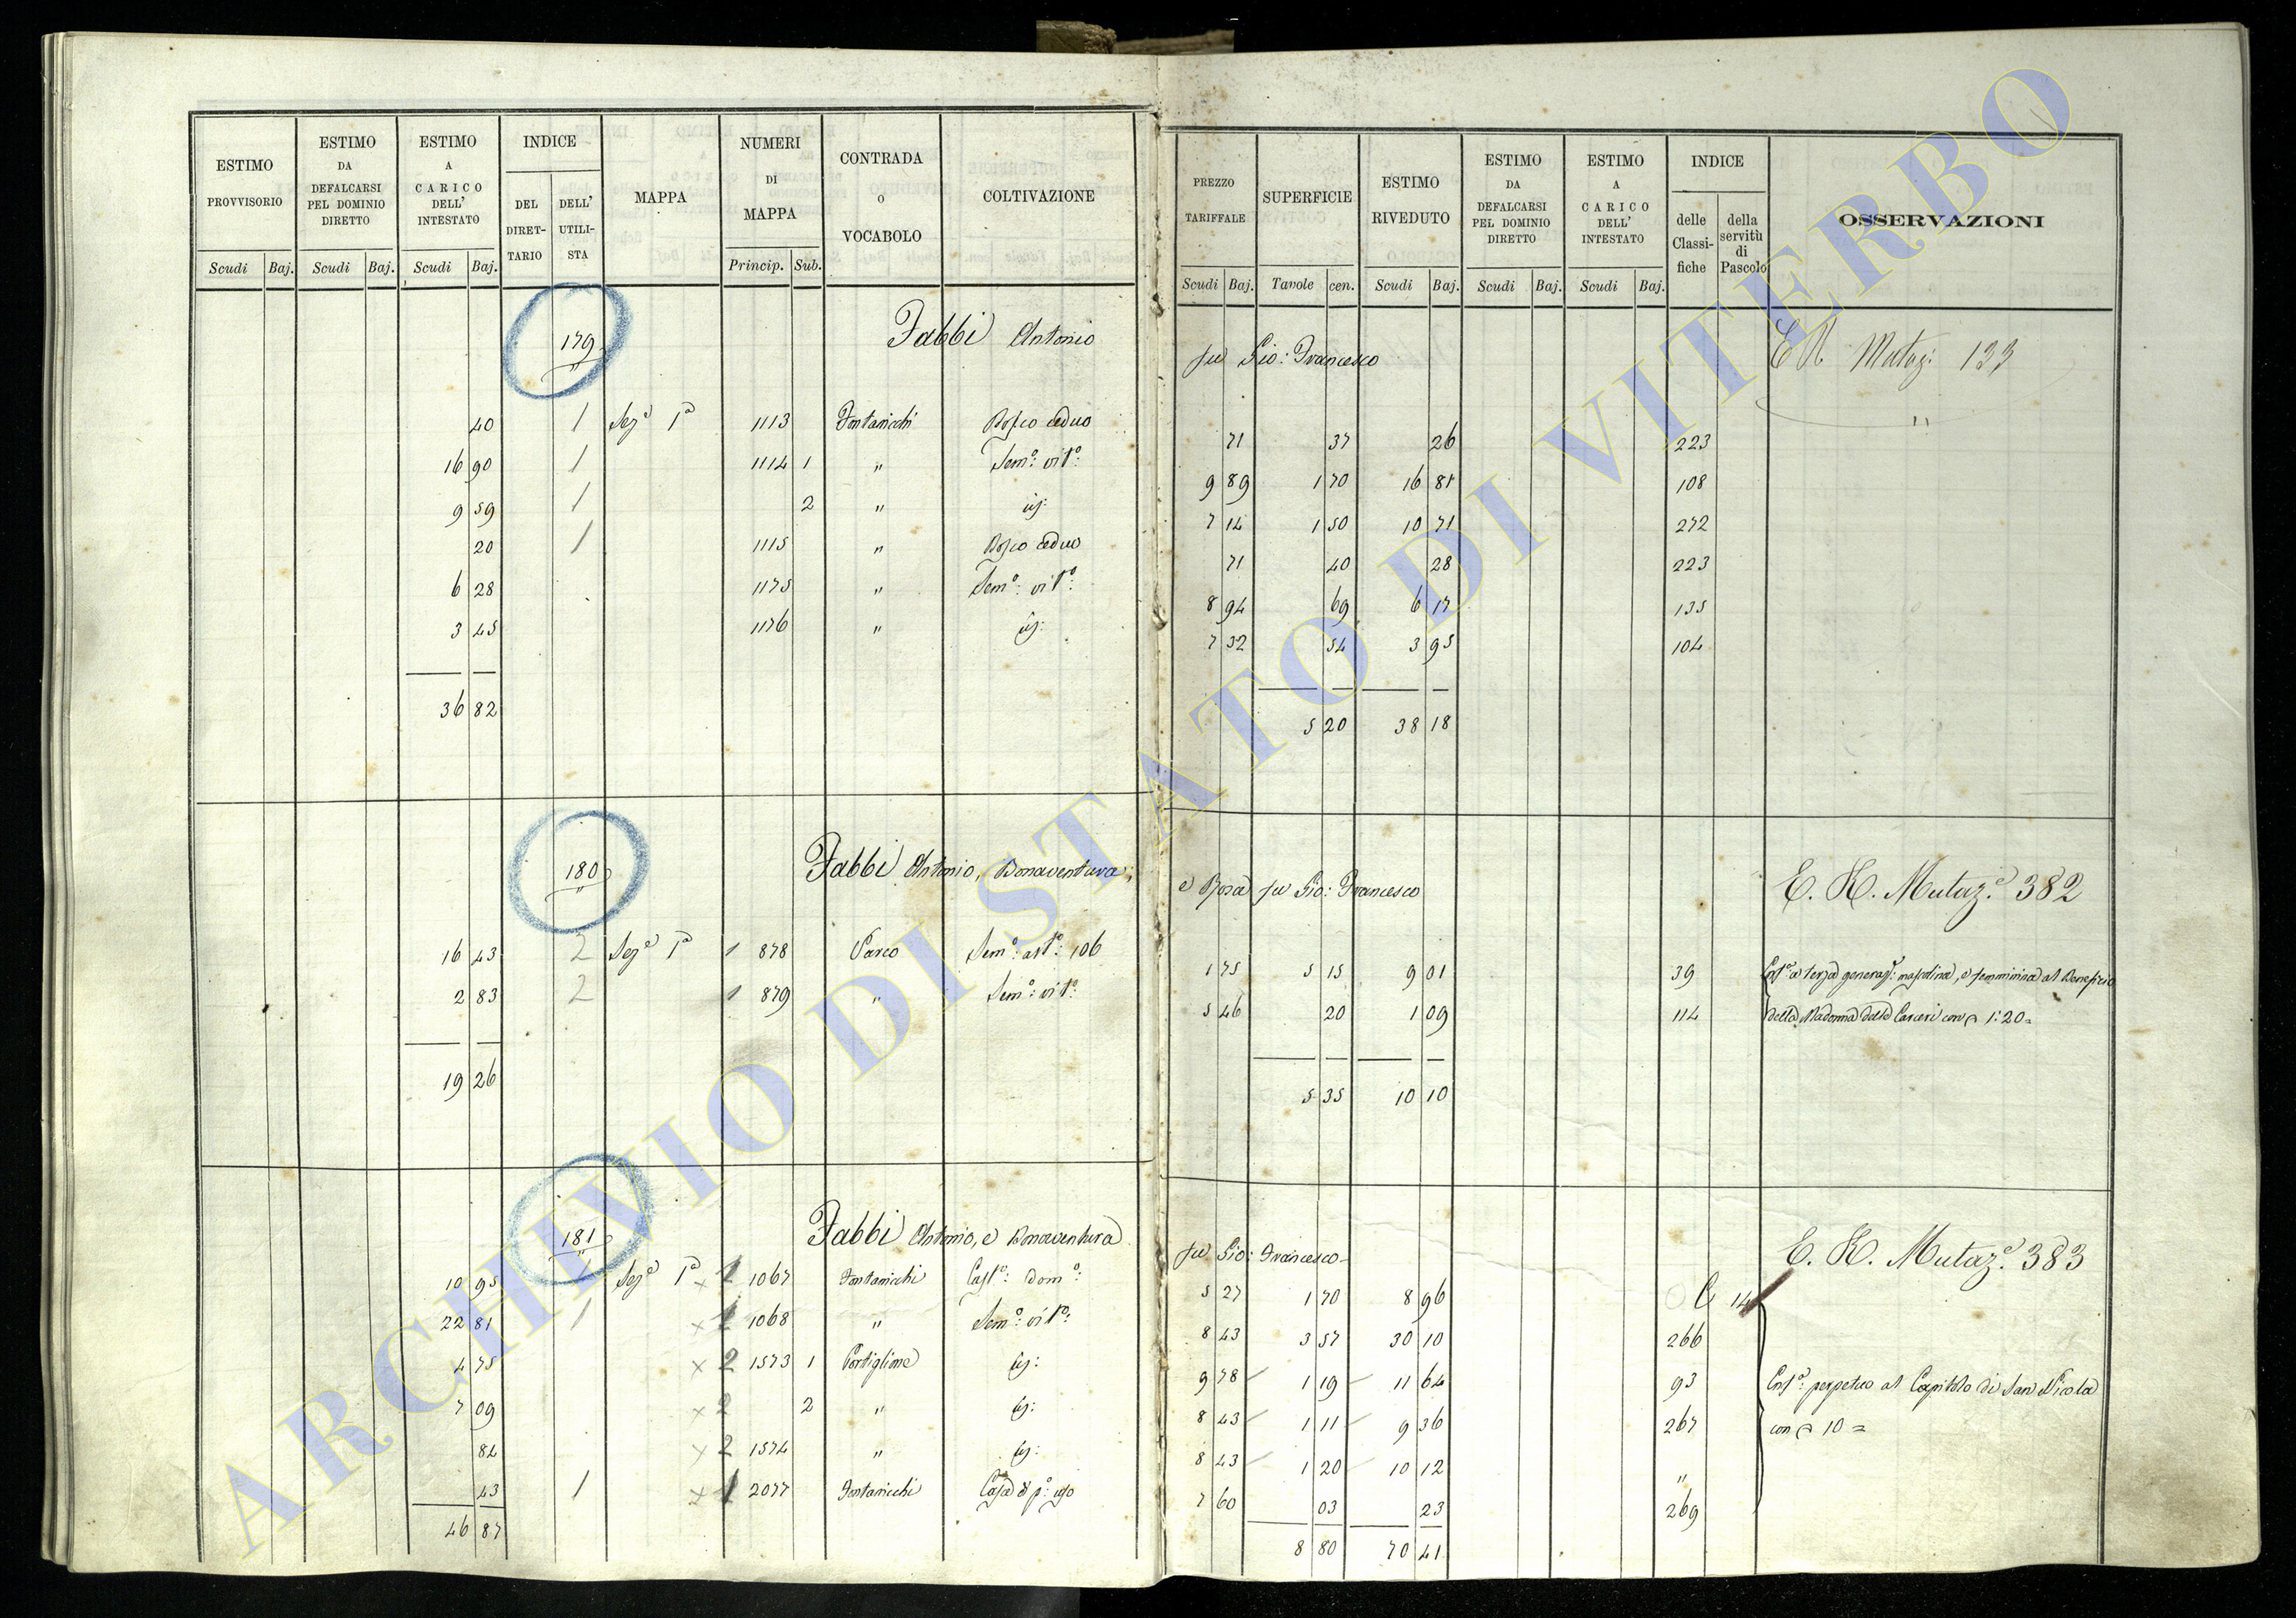 ESTIMO PROVVISORIO
ESTIMO DA DEFALCARSI PEL DOMINIO DIRETTO
ESTIMO A CARICO DELL' INTESTATO
INDICE
DEL DIRET-TARIO
DELL' UTILI-STA
MAPPA
NUMERI DI MAPPA
CONTRADA O VOCABOLO
COLTIVAZIONE
Scudi Baj. Scudi Baj. Scudi Baj. Princip. Sub.
179 Fabbi Antonio
40 1 Sezᵉ 1ª 1113 Fontanicchi Bosco ceduo
16 90 1 1114 1 " Semº: vitº:
9 59 1 2 " id:
20 1 1115 " Bosco ceduo
6 28 1175 " Semº: vitº:
3 45 1176 " id:
36 82
180 Fabbi Antonio, Bonaventura,
16 43 2 Sezᵉ 1ª 1 878 Parco Semº: astº: 106
2 83 2 1 879 " Semº: vitº:
19 26
181 Fabbi Antonio, e Bonaventura
10 95 1 Sezᵉ 1ª x 1 1067 Fontanicchi Castº: domº:
22 81 1 x 1 1068 " Semº: vitº:
4 75 x 2 1573 1 Portiglione id:
7 09 x 2 2 " id:
84 x 2 1574 " id:
43 1 x 1 2077 Fontanicchi Casa di pº: uso
46 87
PREZZO TARIFFALE
SUPERFICIE
ESTIMO RIVEDUTO
ESTIMO DA DEFALCARSI PEL DOMINIO DIRETTO
ESTIMO A CARICO DELL' INTESTATO
INDICE
delle Classi-fiche
della servitù di Pascolo
OSSERVAZIONI
Scudi Baj. Tavole cen. Scudi Baj. Scudi Baj. Scudi Baj.
fu Gio: Francesco
Mutaz: 133
"
71 37 26 223
9 89 1 70 16 81 108
7 14 1 50 10 71 272
71 40 28 223
8 94 69 6 17 135
7 32 54 3 95 104
5 20 38 18
e Rosa fu Gio: Francesco
E. R. Mutazᵉ. 382
1 75 5 15 9 01 39 Enfª: a terza generazᵉ: mascolina, e femminina al Beneficio
5 46 20 1 09 114 della Madonna delle Carceri con 1:20=
5 35 10 10
fu Gio: Francesco
E. R. Mutazᵉ. 383
5 27 1 70 8 96 14
8 43 3 57 30 10 266
9 78 1 19 11 64 93 Enfª: perpetua al Capitolo di San Nicola
8 43 1 11 9 36 267 con 10=
8 43 1 20 10 12 "
7 60 03 23 269
8 80 70 41
ARCHIVIO DI STATO DI VITERBO